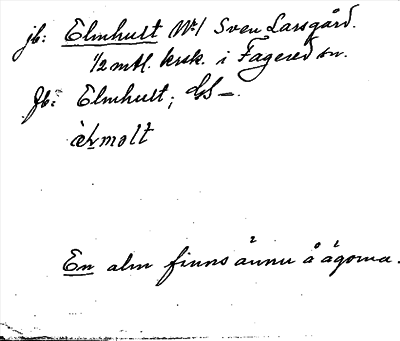 jb: Elmhult No 1 Sven Larsgård.
1/2 mtl. krsk. i Fagered sn.
Jb: Elmhult; GS –.
æ̀ḷmolt
En alm finns ännu å ägorna.